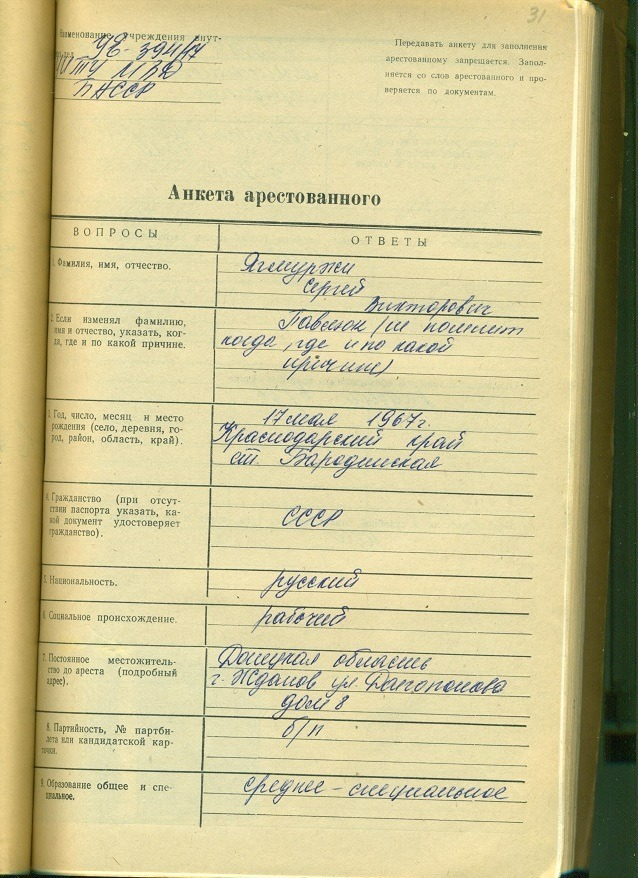 31
Наименование учреждения внут-
УЕ-394/17
МВД
БАССР
Передавать анкету для заполнения
арестованному запрещается. Запол-
няется со слов арестованного и про-
веряется по документам.
Анкета арестованного
ВОПРОСЫ
ОТВЕТЫ
1. Фамилия, имя, отчество.
Ягмуржи
Сергей
Викторович
2. Если изменял фамилию,
имя и отчество, указать, ког-
да, где и по какой причине.
Павенок (не помнит
когда, где и по какой
причине)
3. Год, число, месяц и место
рождения (село, деревня, го-
род, район, область, край).
17 мая 1967г.
Краснодарский край
ст. Бородинская
4. Гражданство (при отсут-
ствии паспорта указать, ка-
кой документ удостоверяет
гражданство).
СССР
5. Национальность.
русский
6. Социальное происхождение.
рабочий
7. Постоянное местожитель-
ство до ареста (подробный
адрес).
Донецкая область
г. Жданов ул.
дом 8
8. Партийность, № партби-
лета или кандидатской кар-
точки.
б/п
9. Образование общее и спе-
циальное.
среднее-специальное